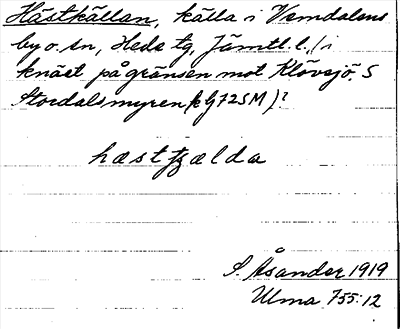 Hästkällan, källa i Vemdalens
by o. sn, Hede tg, Jämtl. l., (i
knäet på gränsen mot Klövsjö, S
Stordalsmyren (k G 72 SM)?
hæstʃælda
S. Åsander 1919
Ulma 755:12